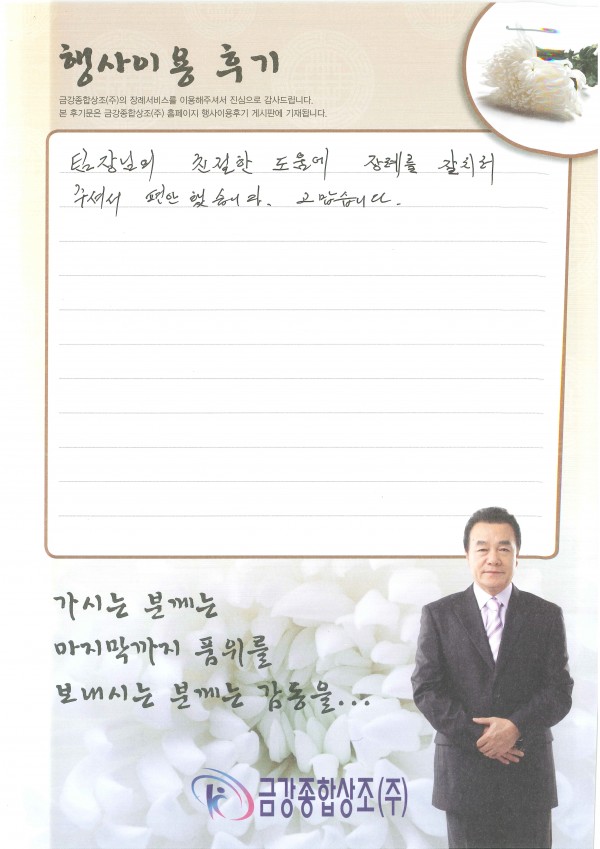 행사이용 후기
금강종합상조(주)의 장례서비스를 이용해주셔서 진심으로 감사드립니다.
본 후기문은 금강종합상조(주) 홈페이지 행사이용후기 게시판에 기재됩니다.
팀장님의 친절한 도움에 장례를 잘치러
주셔서 편안했습니다. 고맙습니다.
가시는 분께는
마지막까지 품위를
보내시는 분께는 감동을...
금강종합상조(주)